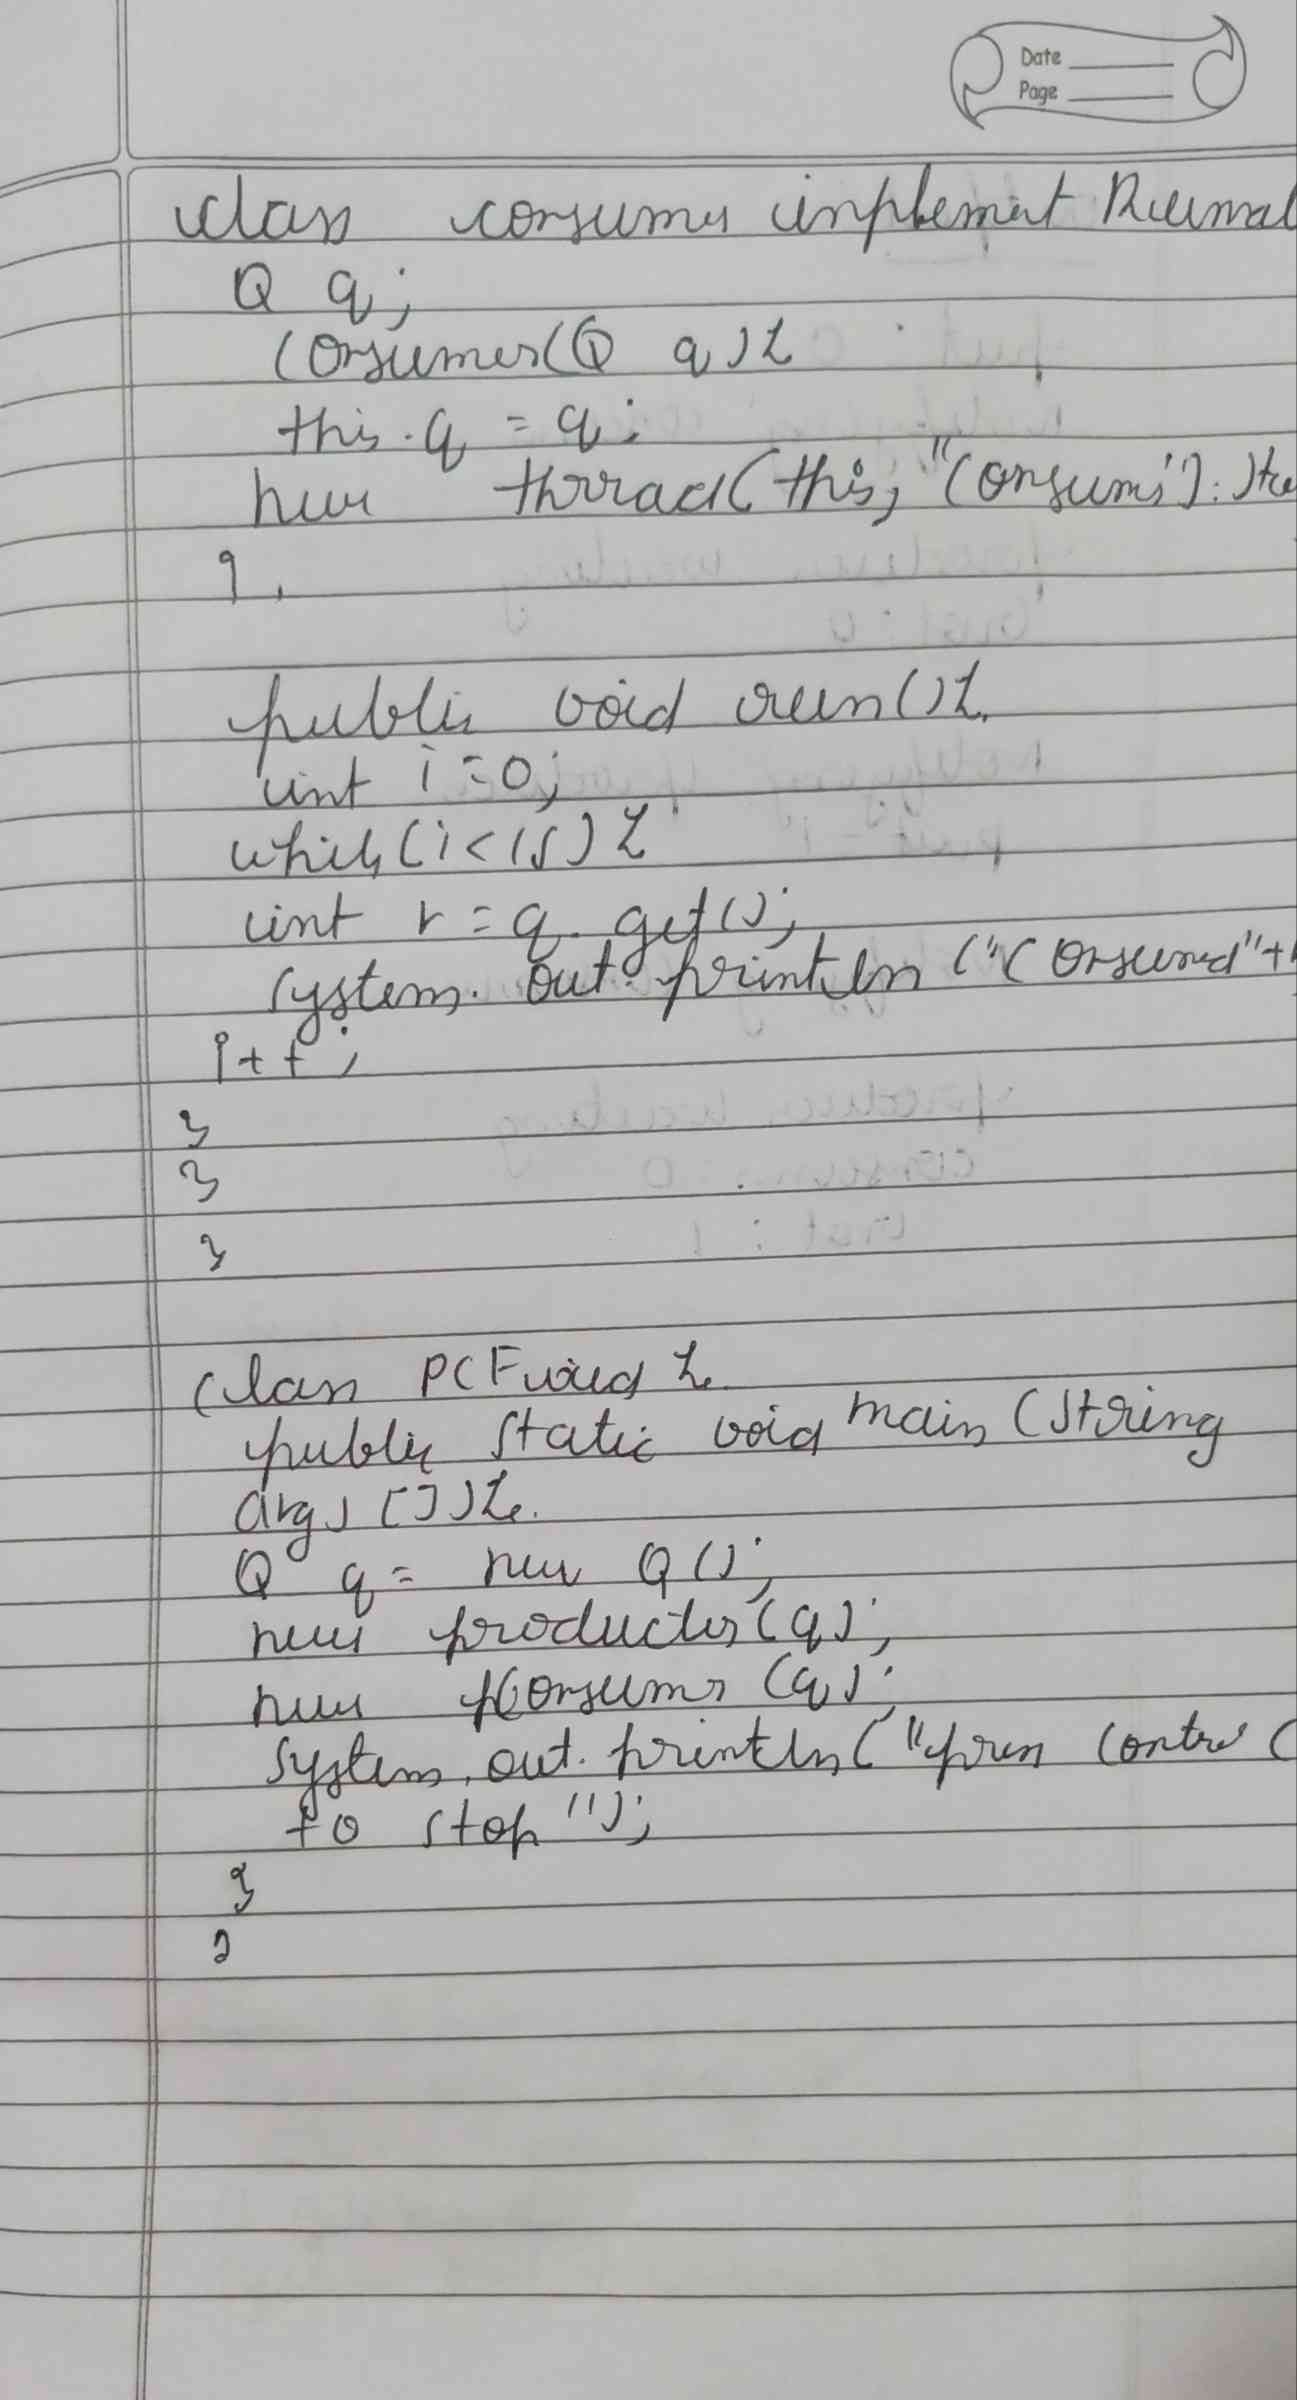 Date
Page
class consumer implement Runnal
Q q;
Consumer(Q q){
this.q = q;
new thrread(this, "Consumer").sta
}
public void run(){
int i=0;
while(i<15){
int r = q.get();
System.out.println("Consumed"+
i++;
}
}
}
class PCFixed {
public static void main (String
args []){
Q q = new Q();
new producter(q);
new Consumer (q);
System.out.println("press Control C
to stop");
}
}